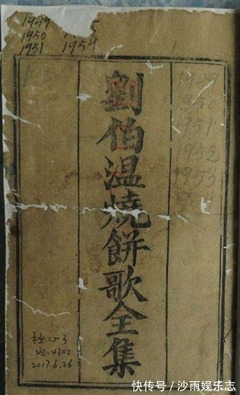 1949
1950
1951 1954
劉伯温燒餅歌全集
1949
1950
1951
1952
1953
2017.6.26
快传号/沙雨娱乐志